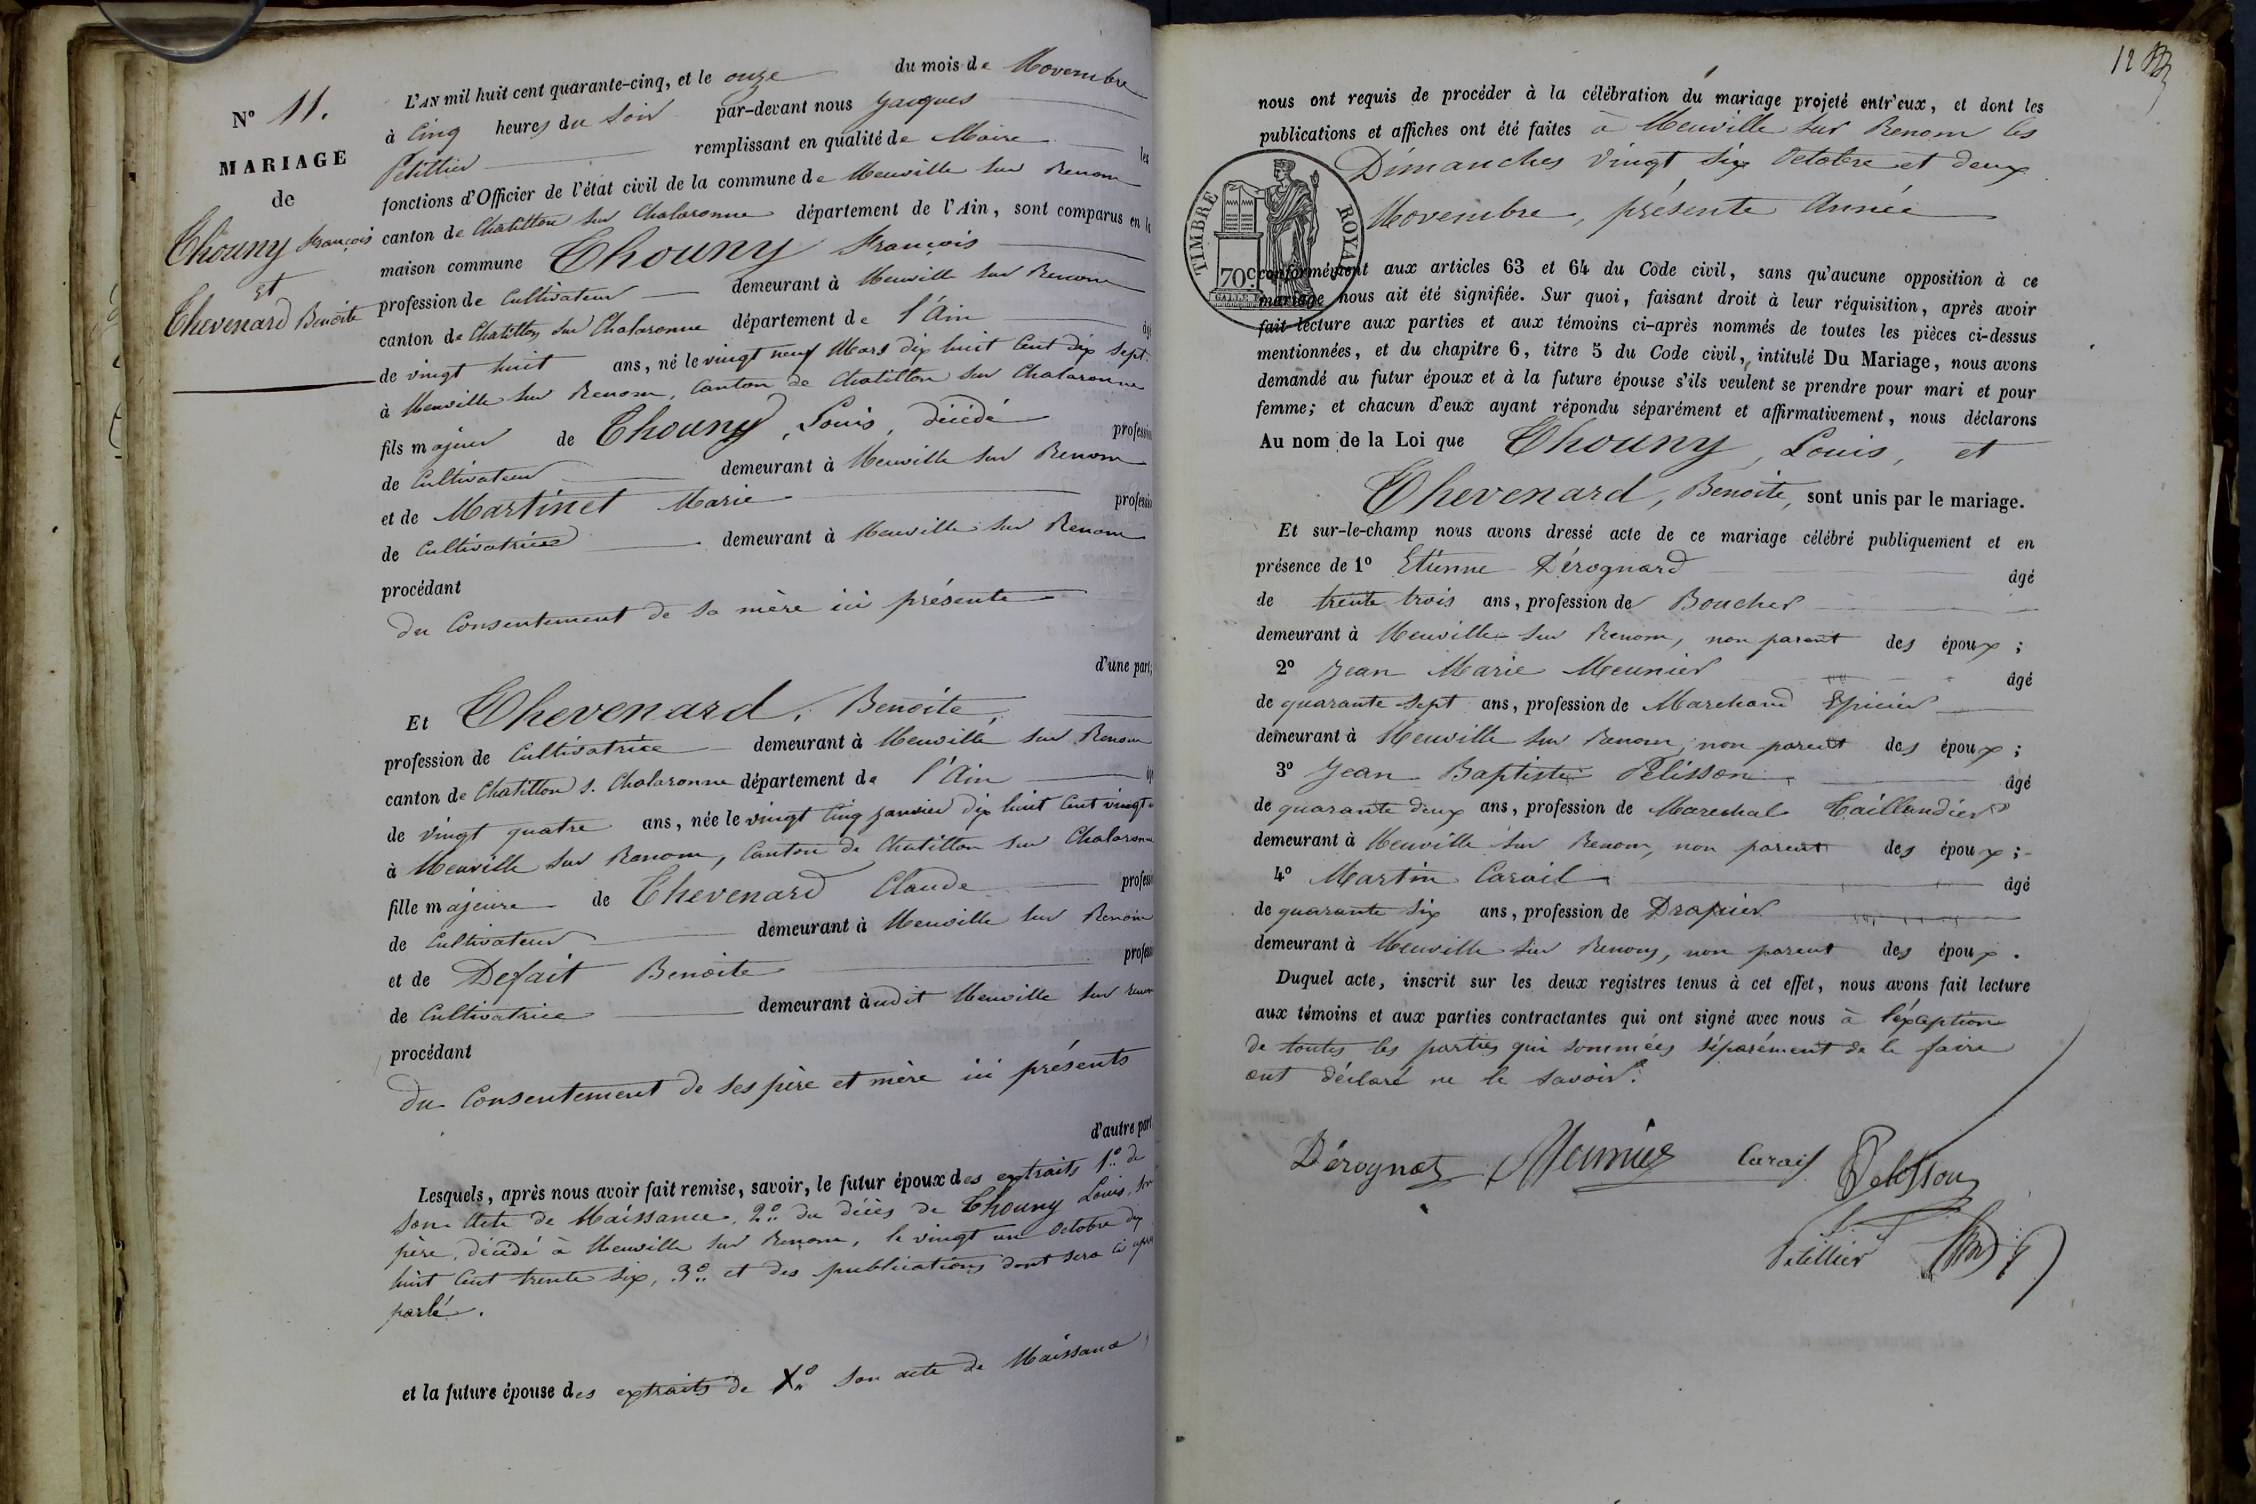 N° 11.
MARIAGE
de
Thouny François
et
Thevenard Benoite
L'AN mil huit cent quarante-cinq, et le onze du mois de Novembre
à Cinq heures du Soir par-devant nous Jacques
Petillier remplissant en qualité de Maire les
fonctions d'Officier de l'état civil de la commune de Neuville sur Renom
canton de Chatillon sur Chalaronne département de l'Ain, sont comparus en la
maison commune Thouny François
profession de Cultivateur demeurant à Neuville sur Renom
canton de Chatillon sur Chalaronne département de l'Ain âgé
de vingt huit ans, né le vingt neuf Mars dix huit Cent dix sept
à Neuville sur Renom, Canton de Chatillon sur Chalaronne
fils majeur de Thouny, Louis, décédé profession
de Cultivateur demeurant à Neuville sur Renom
et de Martinet Marie profession
de Cultivatrice demeurant à Neuville sur Renom
procédant
du Consentement de sa mère ici présente
d'une part;
Et Thevenard, Benoite,
profession de Cultivatrice demeurant à Neuville sur Renom
canton de Chatillon s. Chalaronne département de l'Ain
de vingt quatre ans, née le vingt Cinq Janvier dix huit Cent vingt
à Neuville sur Renom, Canton de Chatillon sur Chalaronne
fille majeure de Thevenard Claude profession
de Cultivateur demeurant à Neuville sur Renom
et de Defait Benoite profession
de Cultivatrice demeurant àudit Neuville sur renom
procédant
du Consentement de ses père et mère ici présents
d'autre part
Lesquels, après nous avoir fait remise, savoir, le futur époux des extraits 1° de
son Acte de Naissance, 2° du décès de Thouny Louis, son
père, décédé à Neuville sur Renom, le vingt un Octobre dix
huit Cent trente six, 3° et des publications dont sera ci après
parlé.
et la future épouse des extraits de X° son acte de Naissance
12
nous ont requis de procéder à la célébration du mariage projeté entr'eux, et dont les
publications et affiches ont été faites à Neuville sur Renom les
Dimanches vingt six Octobre et deux
Novembre, présente Année
TIMBRE ROYAL
70 c
conformément aux articles 63 et 64 du Code civil, sans qu'aucune opposition à ce
mariage nous ait été signifiée. Sur quoi, faisant droit à leur réquisition, après avoir
fait lecture aux parties et aux témoins ci-après nommés de toutes les pièces ci-dessus
mentionnées, et du chapitre 6, titre 5 du Code civil, intitulé Du Mariage, nous avons
demandé au futur époux et à la future épouse s'ils veulent se prendre pour mari et pour
femme; et chacun d'eux ayant répondu séparément et affirmativement, nous déclarons
Au nom de la Loi que Thouny, Louis, et
Thevenard, Benoite, sont unis par le mariage.
Et sur-le-champ nous avons dressé acte de ce mariage célébré publiquement et en
présence de 1° Etienne Dérognard âgé
de trente trois ans, profession de Boucher
demeurant à Neuville sur Renom, non parent des époux;
2° Jean Marie Meunier âgé
de quarante sept ans, profession de Marchand Epicier
demeurant à Neuville sur Renom, non parent des époux;
3° Jean Baptiste Pelisson, âgé
de quarante deux ans, profession de Marechal Taillandier
demeurant à Neuville sur Renom, non parent des époux;
4° Martin Carail âgé
de quarante six ans, profession de Drapier
demeurant à Neuville sur Renom, non parent des époux.
Duquel acte, inscrit sur les deux registres tenus à cet effet, nous avons fait lecture
aux témoins et aux parties contractantes qui ont signé avec nous à l'éxception
de toutes les parties qui sommées séparément de le faire
ont déclaré ne le savoir.
Dérognat Meunier Carail Pelisson
Petillier